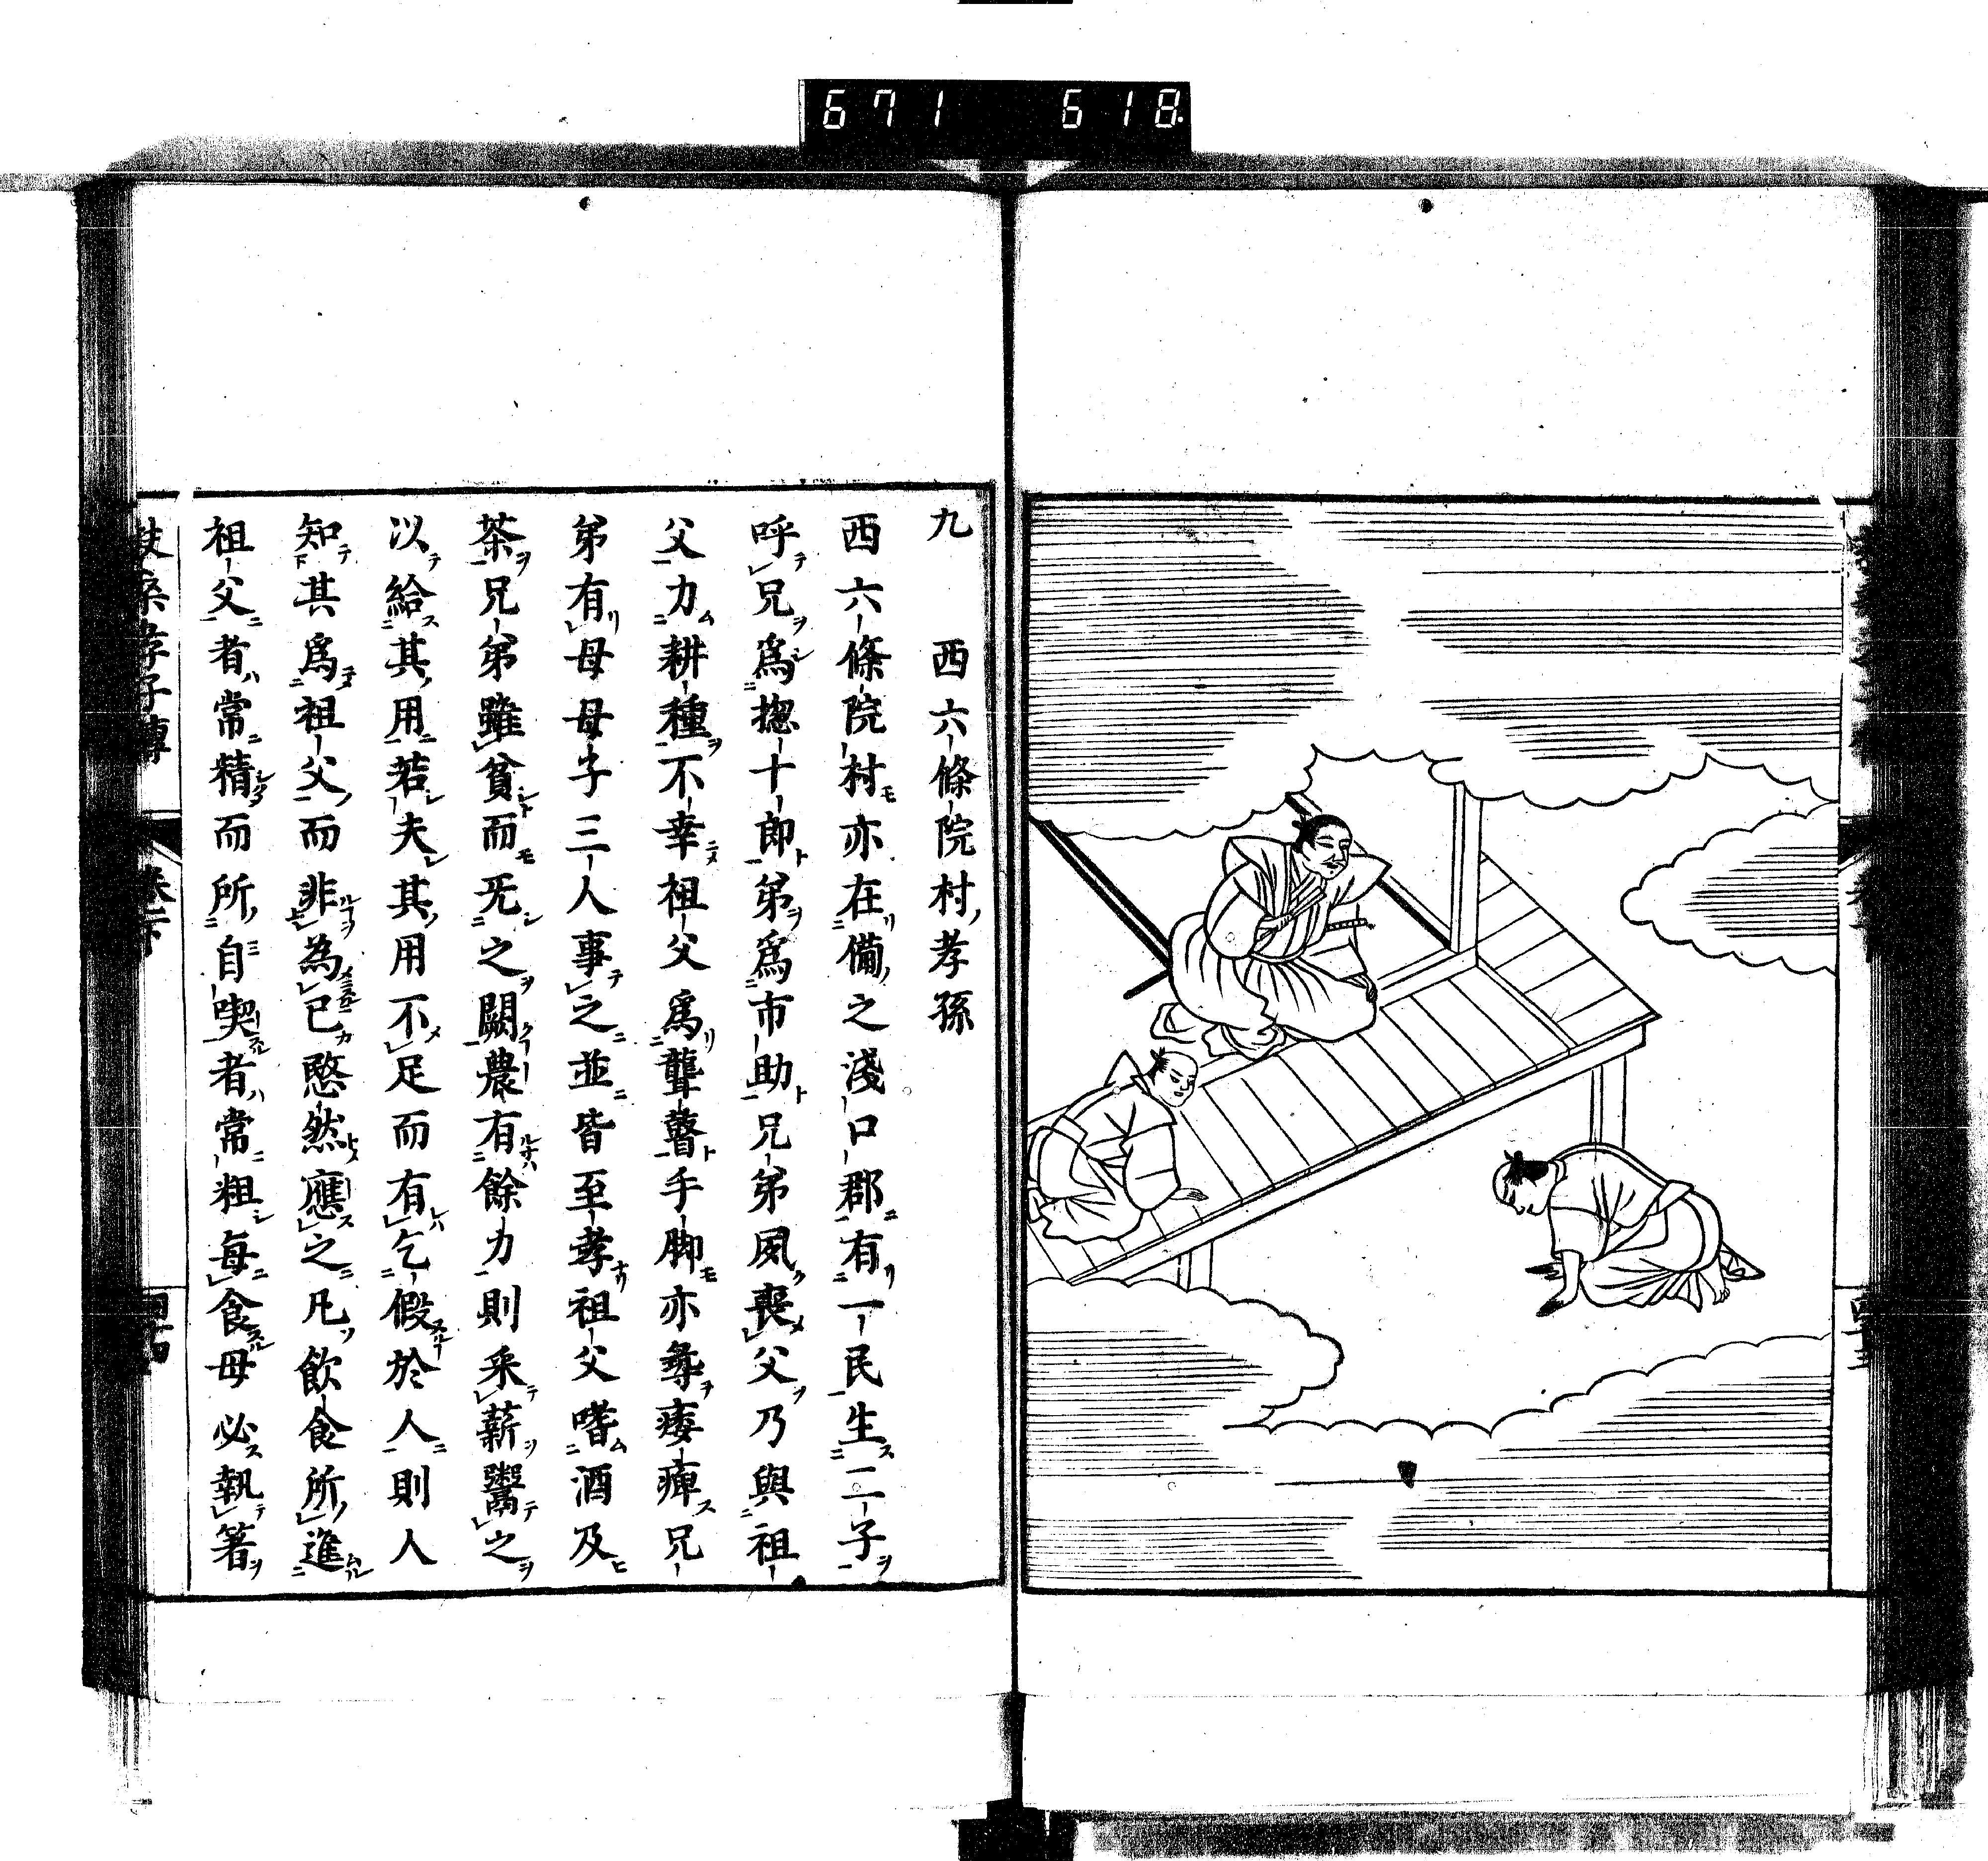 671 618
九 西六條院村孝孫
西六條院村亦在備之淺口郡有一民生二子
呼兄爲揔十郎弟爲市助兄弟夙喪父乃與祖
父力耕種不幸祖父爲聾瞽手脚亦毎痿痺兄
弟有母母子三人事之並皆至孝祖父嗜酒及
茶兄弟雖貧而旡之闕農有餘力則采薪鬻之
以給其用若夫其用不足而有乞假於人則人
知其爲祖父而非為已愍然應之凡飲食所進
祖父者常精而所自喫者常粗每食母必執箸
孝子傳